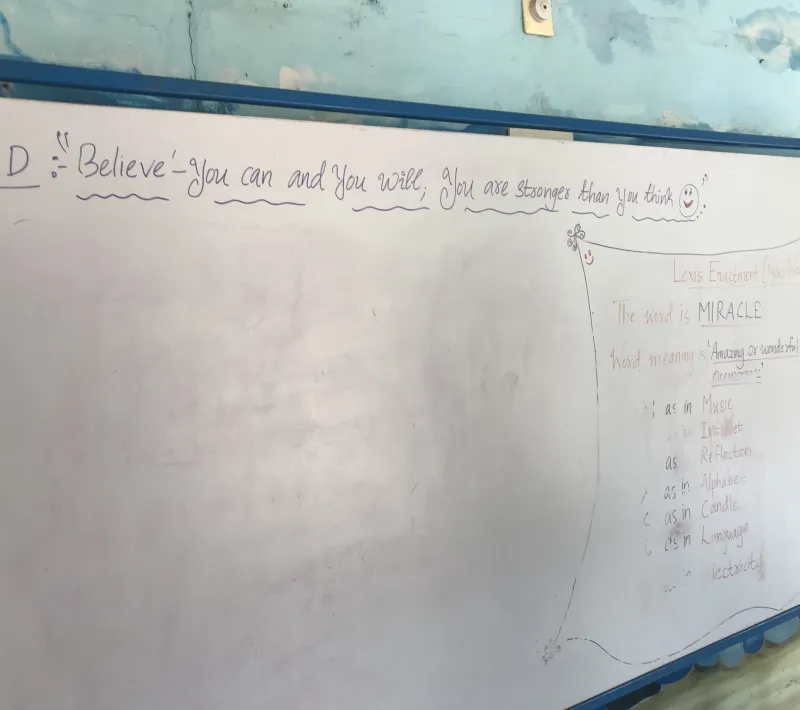 D :- "Believe'-You can and You will, You are stronger than you think
Lexis Enactment
The word is MIRACLE
Word meaning is 'Amazing or wonderful
as in Music
Int
as Reflection
as in Alphabet
C as in Candle
as in Language
lectricity